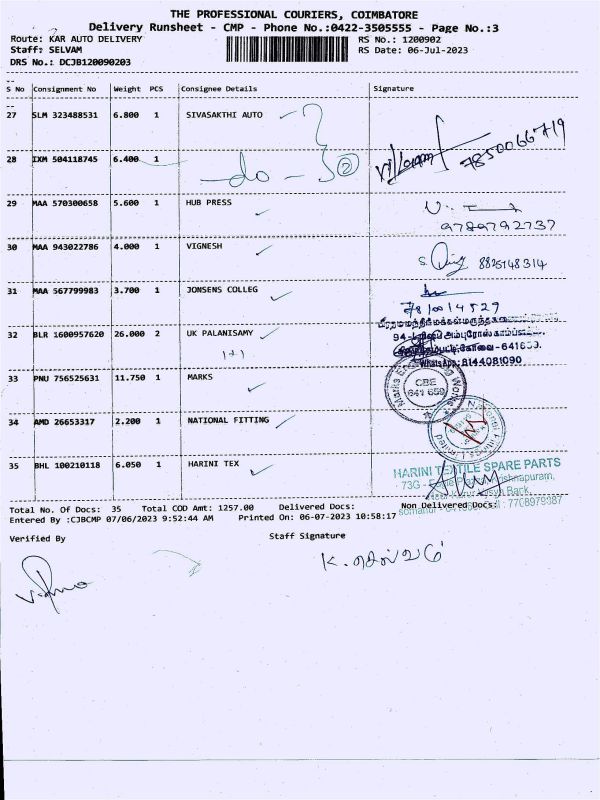 THE PROFESSIONAL COURIERS, COIMBATORE
Delivery Runsheet - CMP - Phone No.:0422-3505555 - Page No.:3
Route: KAR AUTO DELIVERY RS No.: 1200902
Staff: SELVAM RS Date: 06-Jul-2023
DRS No.: DCJB120090203
S No Consignment No Weight PCS Consignee Details Signature
27 SLM 323488531 6.800 1 SIVASAKTHI AUTO
7850066719
28 IXM 504118745 6.400 1
-do- 2
29 MAA 570300658 5.600 1 HUB PRESS
9789792737
30 MAA 943022786 4.000 1 VIGNESH
8825748314
31 MAA 567799983 3.700 1 JONSENS COLLEG
7810014527
32 BLR 1600957620 26.000 2 UK PALANISAMY
1+1
WhatsApp: 8144081090
33 PNU 756525631 11.750 1 MARKS
CBE
641 659
34 AMD 26653317 2.200 1 NATIONAL FITTING
35 BHL 100210118 6.050 1 HARINI TEX
HARINI TEXTILE SPARE PARTS
Total No. Of Docs: 35 Total COD Amt: 1257.00 Delivered Docs: Non Delivered Docs:
Entered By :CJBCMP 07/06/2023 9:52:44 AM Printed On: 06-07-2023 10:58:17
Verified By Staff Signature
K. செல்வம்